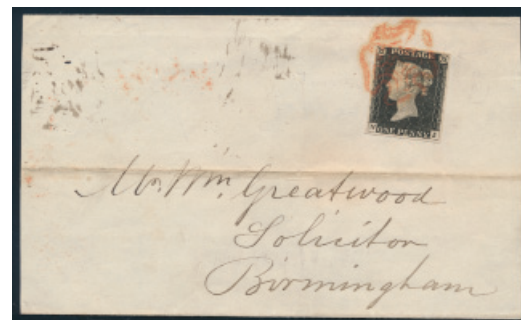 POSTAGE
ONE PENNY
Mr. Wm. Greatwood
Solicitor
Birmingham